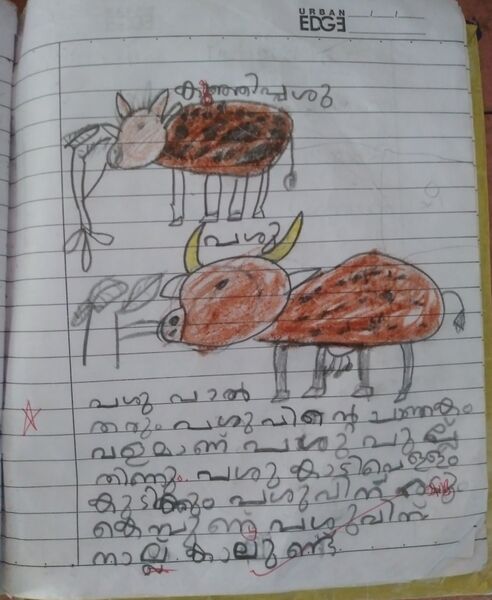 URBAN
EDGE
കുഞ്ഞിപ്പശു
പശു
പശു പാൽ
തരും പശുവിന്റെ ചാണകം
വളമാണ് പശു പുല്ല്
തിന്നും. പശു കാടിവെള്ളം
കുടിക്കും പശുവിന്
കൊമ്പുണ്ട് പശുവിന്
നാല്ല് കാലുണ്ട്